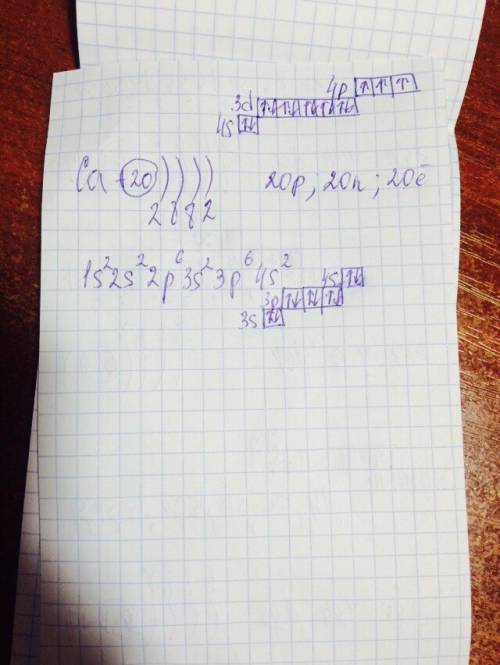 4p ↑ ↑ ↑
3d ↑↓ ↑↓ ↑↓ ↑↓ ↑↓
4s ↑↓
Ca +20 ) ) ) ) 20p, 20n; 20ē
2 8 8 2
1s² 2s² 2p⁶ 3s² 3p⁶ 4s²
4s ↑↓
3p ↑↓ ↑↓ ↑↓
3s ↑↓